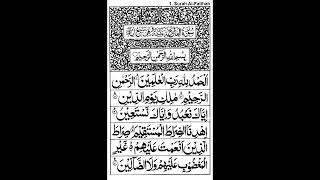 1. Surah Al-Fatihah
بِسْمِ اللهِ الرَّحْمٰنِ الرَّحِيْمِ
اَلْحَمْدُ لِلّٰهِ رَبِّ الْعٰلَمِيْنَ الرَّحْمٰنِ
الرَّحِيْمِ مٰلِكِ يَوْمِ الدِّيْنِ
اِيَّاكَ نَعْبُدُ وَاِيَّاكَ نَسْتَعِيْنُ
اِهْدِنَا الصِّرَاطَ الْمُسْتَقِيْمَ صِرَاطَ
الَّذِيْنَ اَنْعَمْتَ عَلَيْهِمْ غَيْرِ
الْمَغْضُوْبِ عَلَيْهِمْ وَلَا الضَّآلِّيْنَ